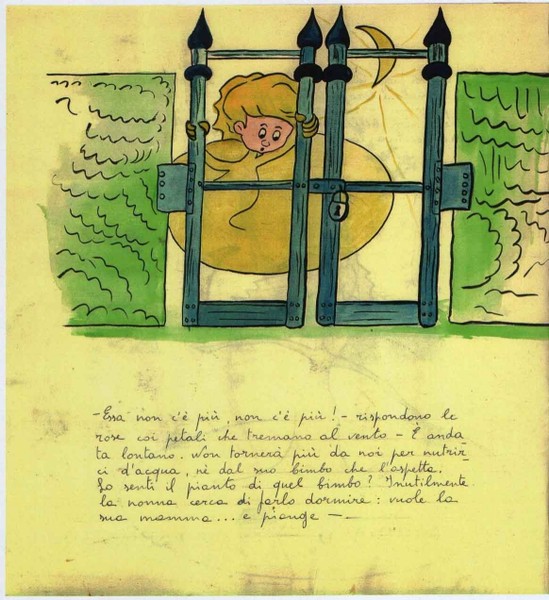 - Essa non c'è più, non c'è più! - rispondono le
rose coi petali che tremano al vento - È anda_
ta lontano. Non tornerà più da noi per nutrir_
ci d'acqua, nè dal suo bimbo che l'aspetta.
Lo senti il pianto di quel bimbo? Inutilmente
la nonna cerca di farlo dormire: vuole la
sua mamma... e piange —